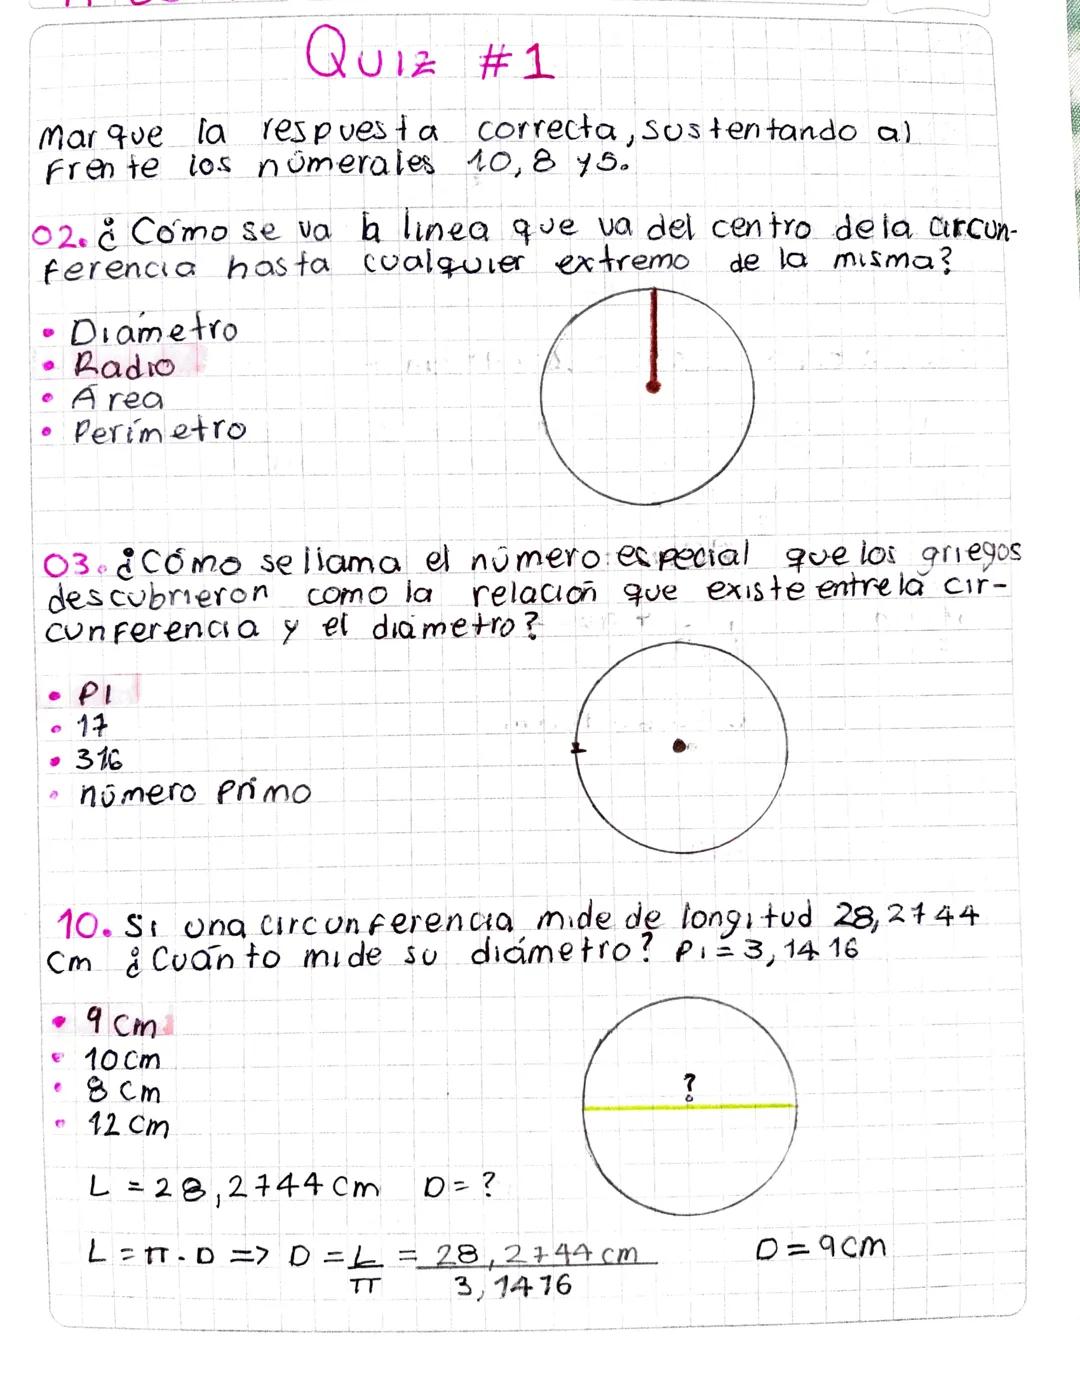 Quiz #1
Marque la respuesta correcta, sustentando al
frente los númerales 10, 8 y 5.
02. ¿Cómo se va la linea que va del centro de la circun-
ferencia hasta cualquier extremo de la misma?
• Diámetro
• Radio
• Área
• Perímetro
03. ¿Cómo se llama el número especial que los griegos
descubrieron como la relación que existe entre la cir-
cunferencia y el diámetro?
• PI
• 17
• 316
• número primo
10. Si una circunferencia mide de longitud 28,2744
cm ¿Cuánto mide su diámetro? Pi = 3,1416
• 9 cm
• 10 cm
• 8 cm
• 12 cm
?
L = 28,2744 cm D = ?
L = π . D => D = L/π = 28,2744 cm/3,1416 D = 9 cm